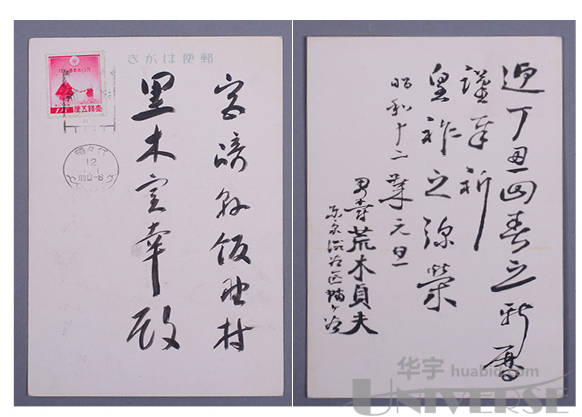 郵便はがき
12
宮崎縣飯野村
黒木幸殿
迎丁丑回春之新暦
謹奉祈
皇祚之弥榮
昭和十二年元旦
男爵荒木貞夫
東京渋谷区幡ヶ谷
华宇 huabid.com
UNIVERSE